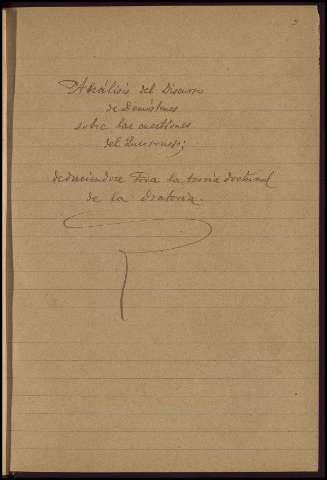 3
Análisis del Discurso
de Demóstenes
sobre las cuestiones
del Quersoneso;
deduciendose Toda la teoria doctrinal
de la Oratoria.